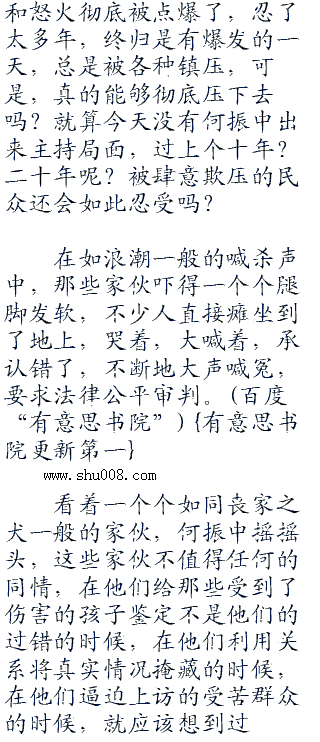 和怒火彻底被点爆了，忍了
太多年，终归是有爆发的一
天，总是被各种镇压，可
是，真的能够彻底压下去
吗？就算今天没有何振中出
来主持局面，过上个十年？
二十年呢？被肆意欺压的民
众还会如此忍受吗？
在如浪潮一般的喊杀声
中，那些家伙吓得一个个腿
脚发软，不少人直接瘫坐到
了地上，哭着，大喊着，承
认错了，不断地大声喊冤，
要求法律公平审判。（百度
“有意思书院”）{有意思书
院更新第一}
www.shu008.com
看着一个个如同丧家之
犬一般的家伙，何振中摇摇
头，这些家伙不值得任何的
同情，在他们给那些受到了
伤害的孩子鉴定不是他们的
过错的时候，在他们利用关
系将真实情况掩藏的时候，
在他们逼迫上访的受苦群众
的时候，就应该想到过